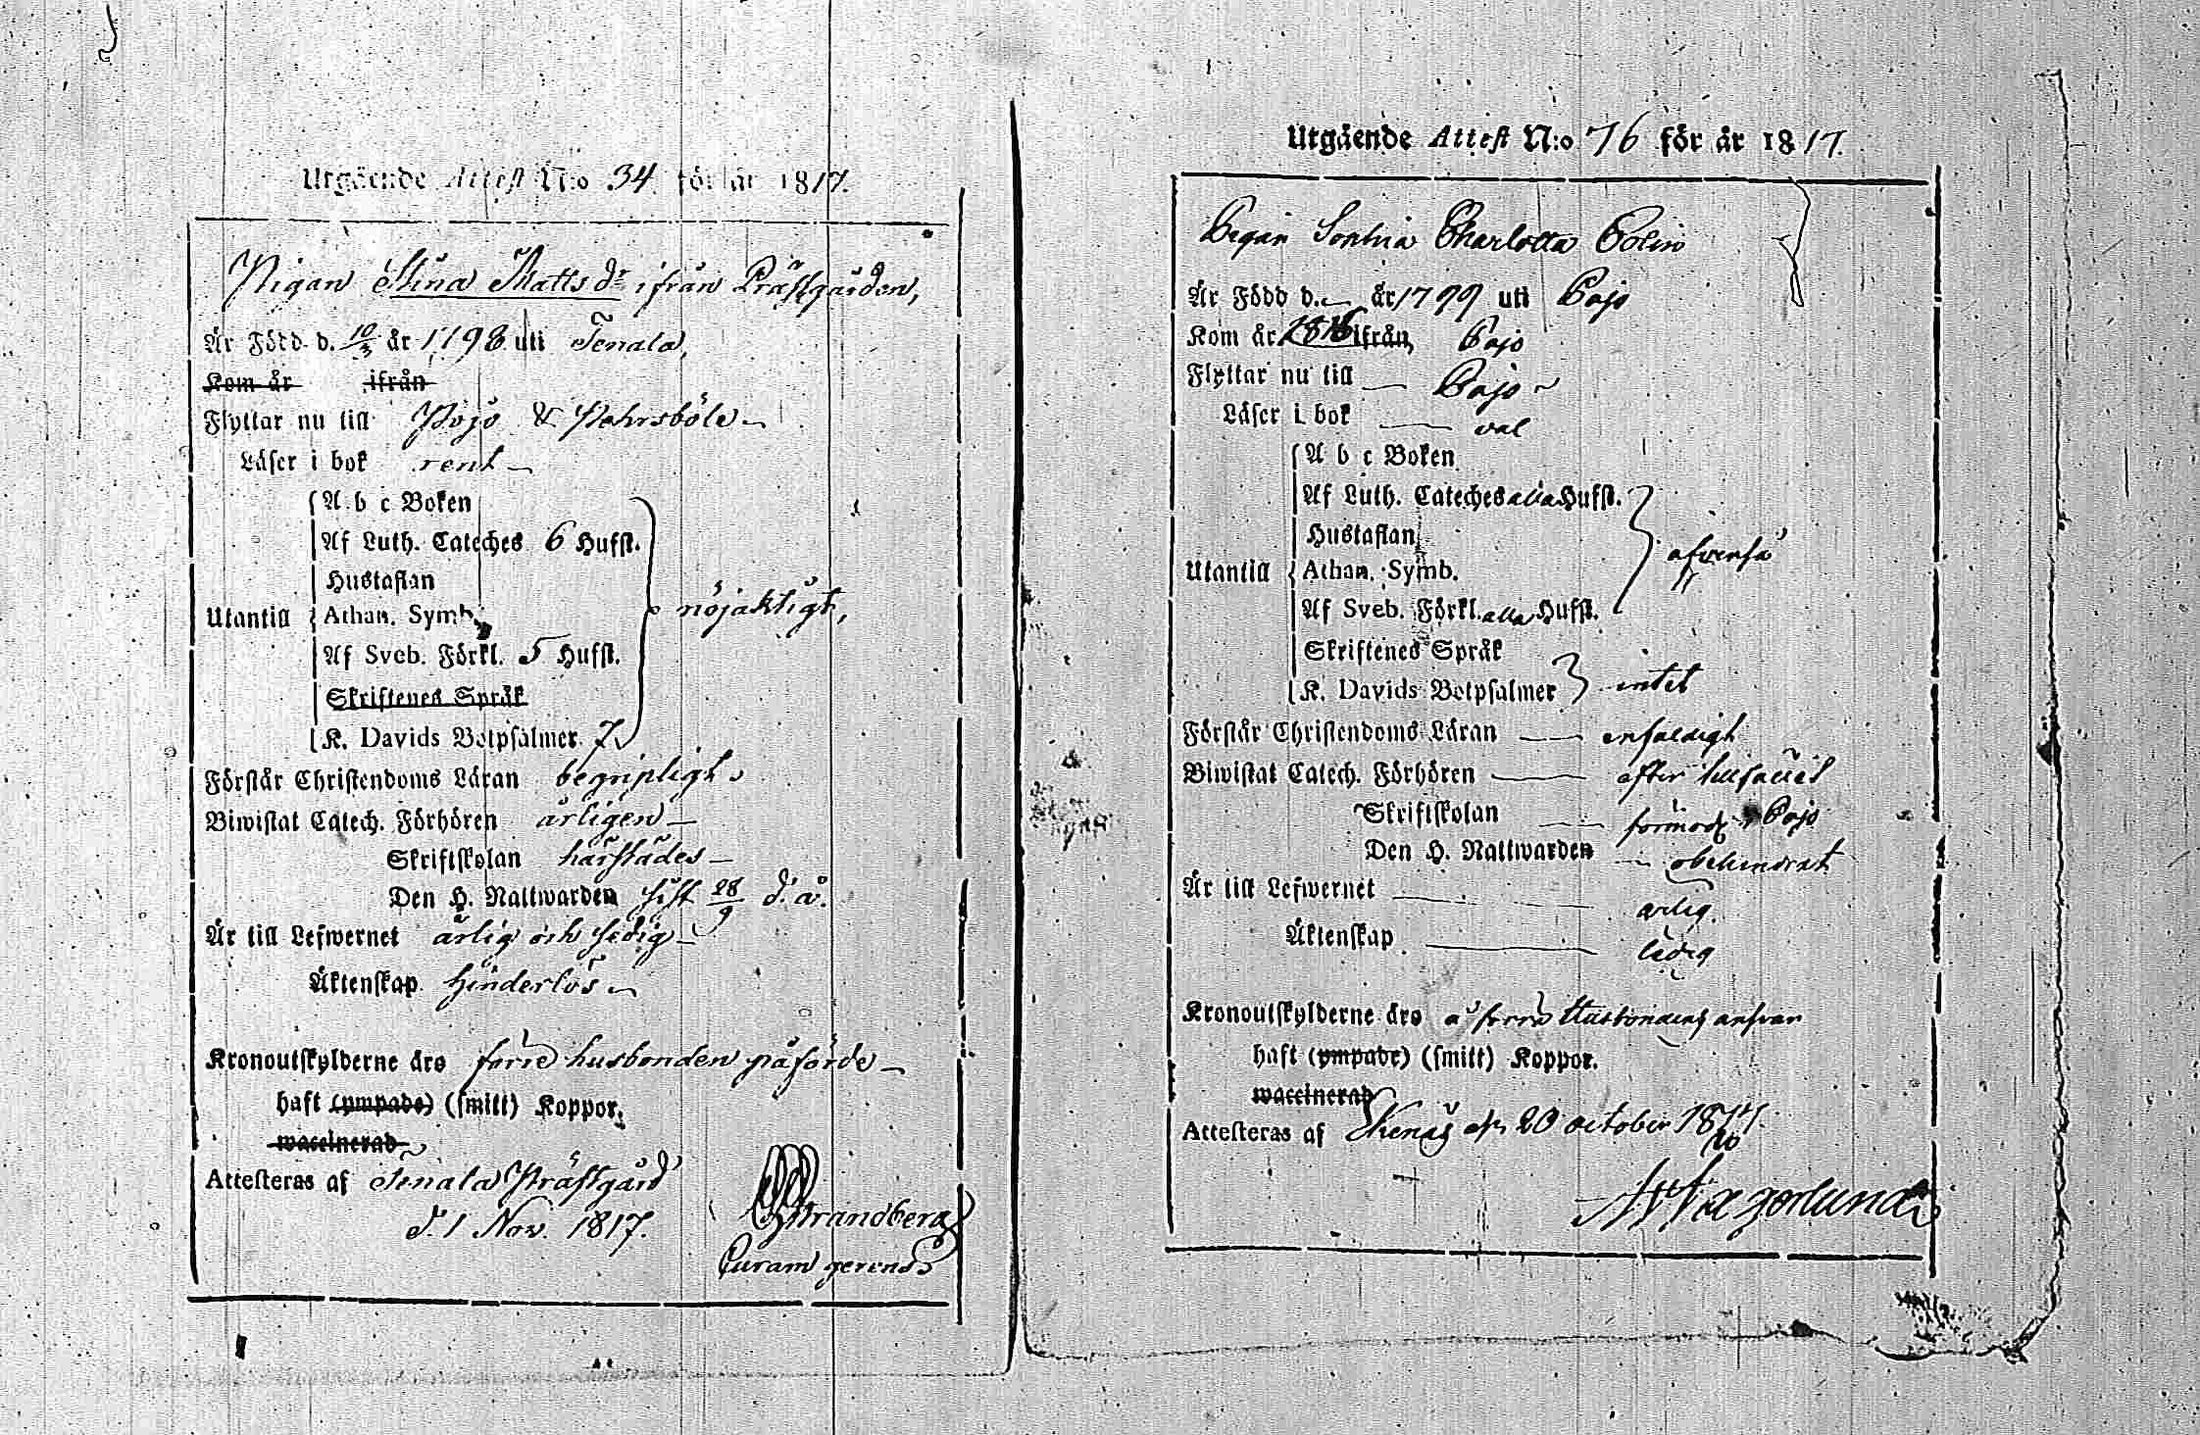 Utgående Attest N:o 34. för år 1817.
Pigan Stina Mattsdr ifrån Prästgården,
Är Född d. 10/3 år 1798 uti Tenala,
Kom år ifrån
Flyttar nu till Pojo &
Läser i bok rent
A b c Boken
Af Luth. Cateches 6 Hufst.
Hustaflan
Utantill Athan. Symb. nöjaktigt,
Af Sveb. Förkl. 5 Hufst.
Skriftenes Språk
K. Davids Botpsalmer 7
Förstår Christendoms Läran begripligt
Biwistat Catech. Förhören årligen
Skriftskolan härstädes
Den H. Nattwarden sist 28/9 d. å.
Är till Lefwernet ärlig och sedig
Äktenskap hinderlös
Kronoutskylderne äro förre husbonden påförde
haft (ympade) (smitt) Koppor.
waccinerad
Attesteras af Tenala Prästgård
d. 1 Nov. 1817. Strandberg
Curam gerens
Utgående Attest N:o 76 för år 1817.
Pigan Sophia Charlotta
Är Född d. år 1799 uti Pojo
Kom år 1816 ifrån Pojo
Flyttar nu till Pojo
Läser i bok val
A b c Boken
Af Luth. Cateches alla Hufst.
Hustaflan
Utantill Athan. Symb.
Af Sveb. Förkl. alla Hufst.
Skriftenes Språk
K. Davids Botpsalmer intet
Förstår Christendoms Läran enfaldigt
Biwistat Catech. Förhören efter
Skriftskolan Pojo
Den H. Nattwarden obehindrat
Är till Lefwernet ärlig.
Äktenskap ledig
Kronoutskylderne äro å förra Husbondens answar
haft (ympade) (smitt) Koppor.
waccinerad
Attesteras af Ekenäs 20 october 1817.